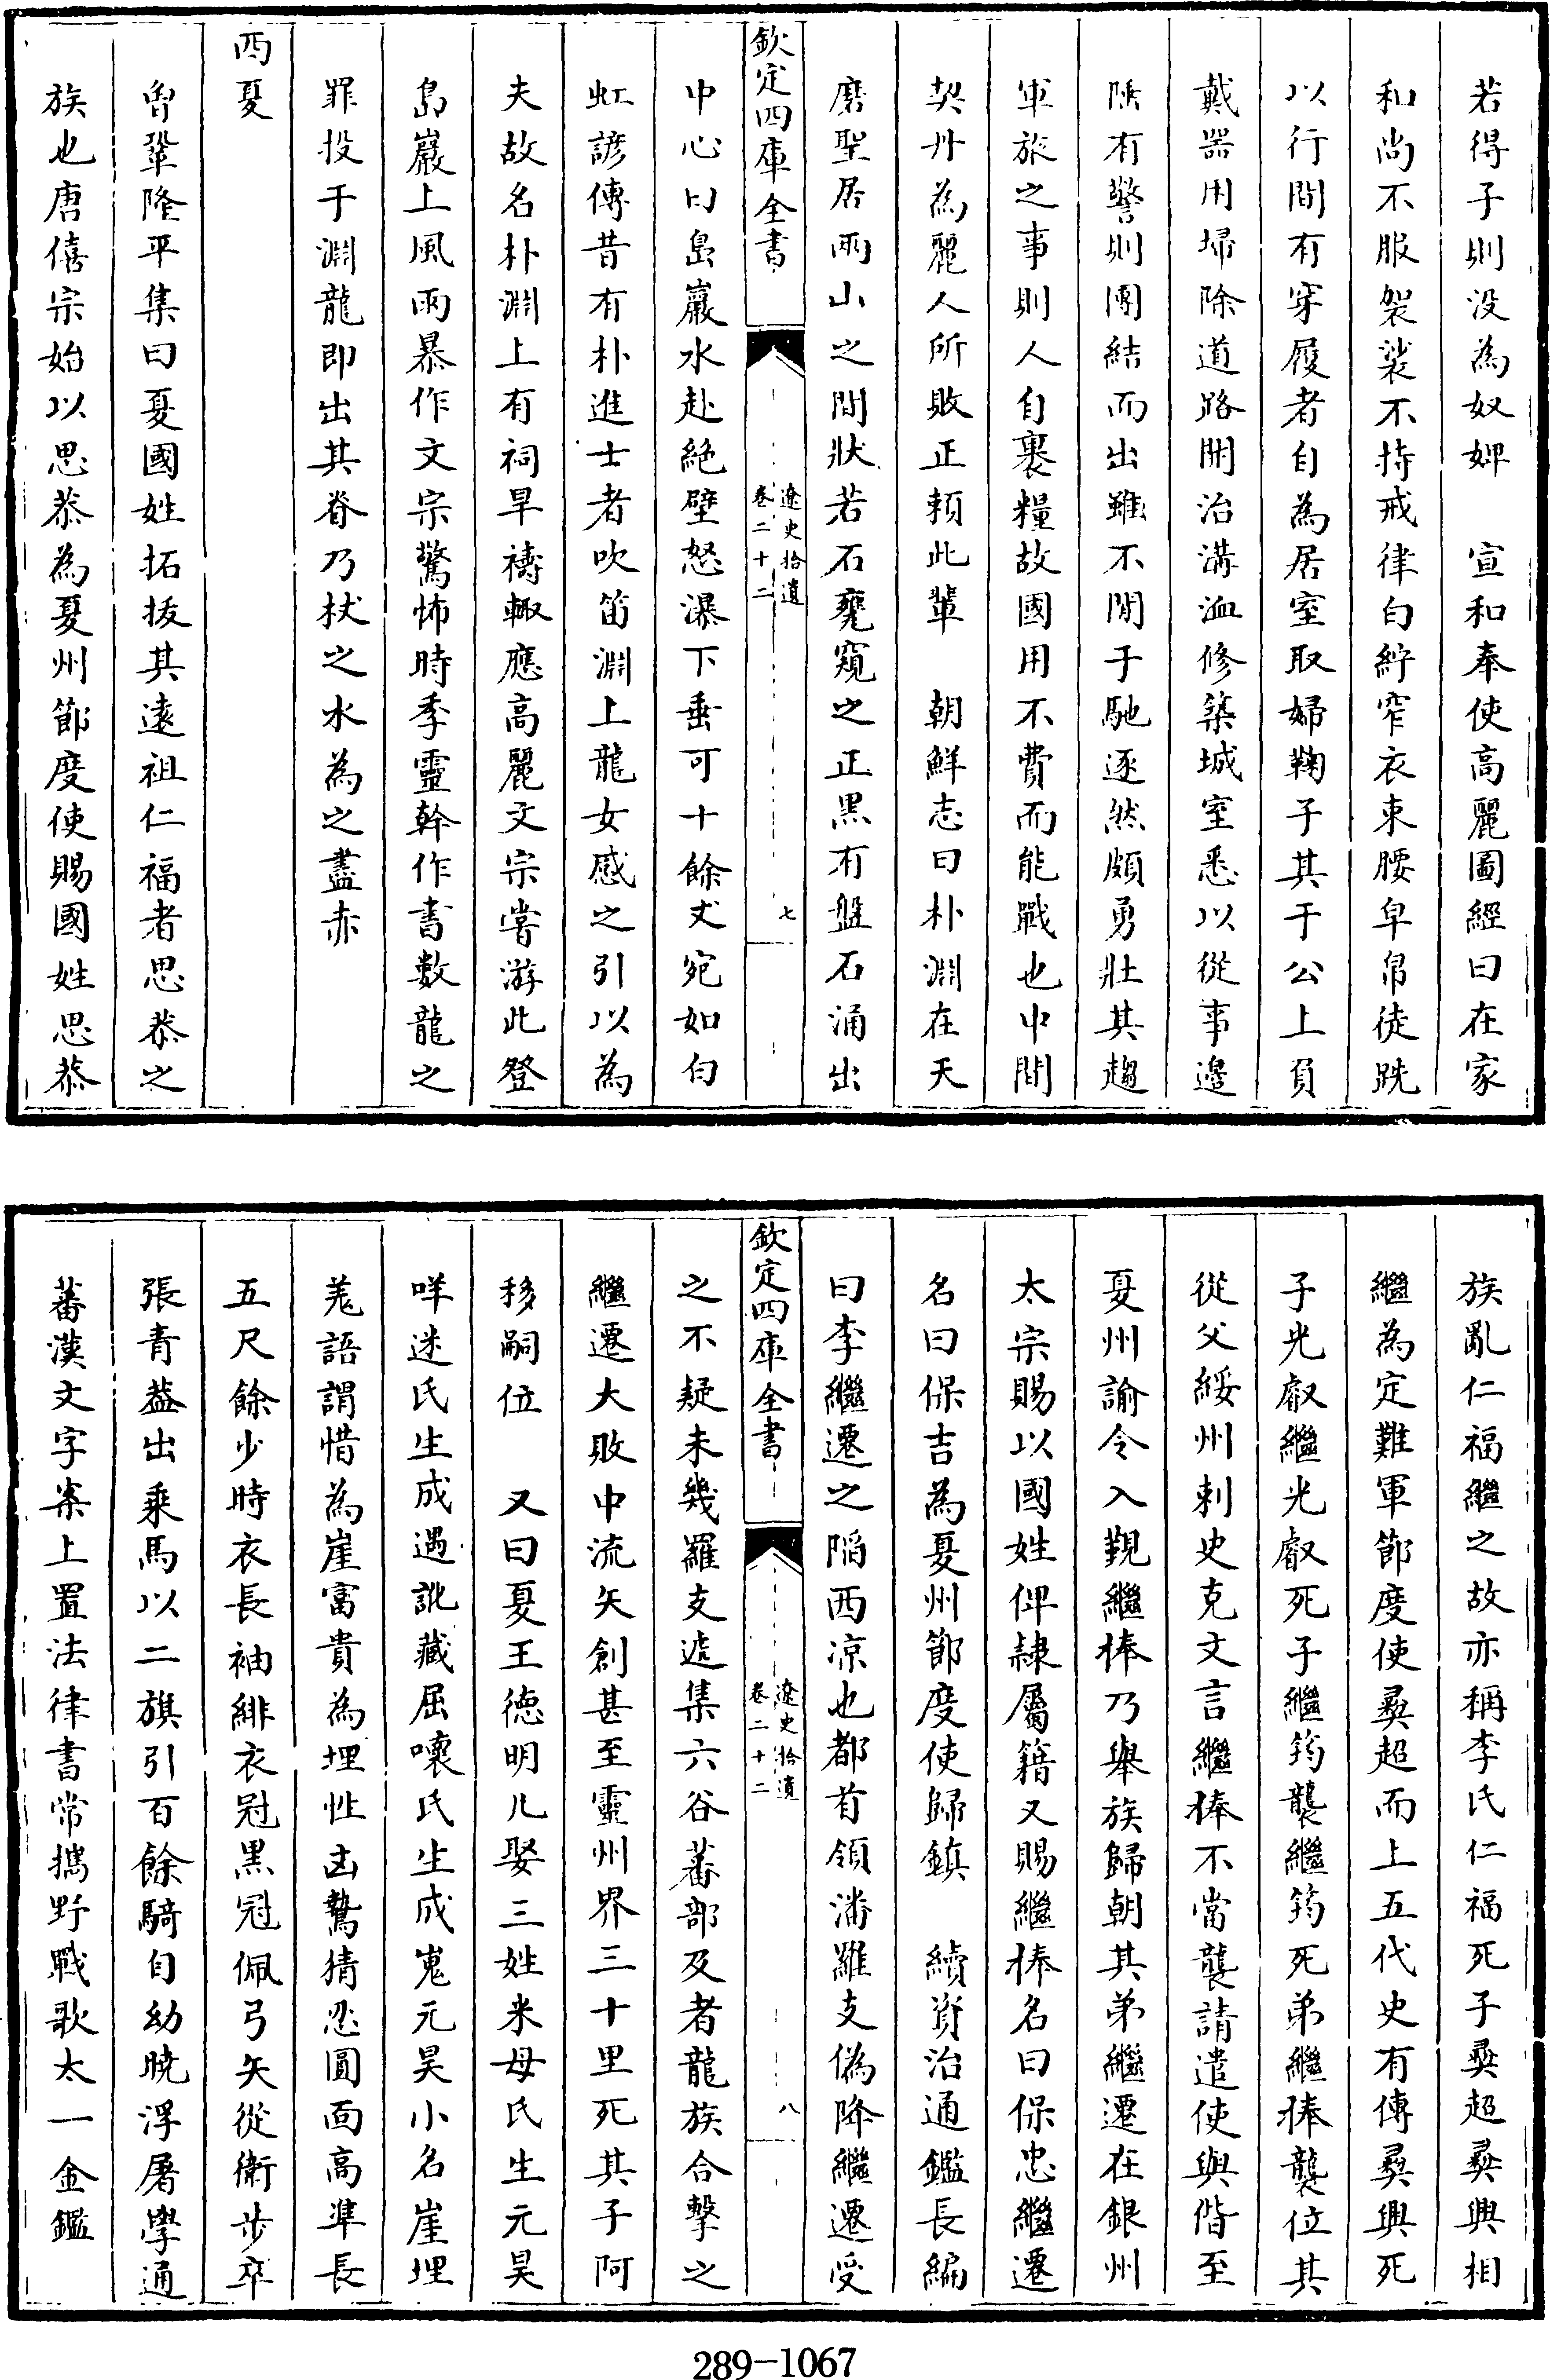 若得子則没為奴婢　宣和奉使高麗圖經曰在家
和尚不服袈裟不持戒律白紵窄衣束腰皁帛徒跣
以行間有穿履者自為居室取婦鞠子其于公上負
戴器用埽除道路開治溝洫修築城室悉以從事邊
陲有警則團結而出雖不閒于馳逐然頗勇壯其趨
軍旅之事則人自裹糧故國用不費而能戰也中間
契丹為麗人所敗正賴此輩　朝鮮志曰朴淵在天
磨聖居兩山之間狀若石甕窺之正黑有盤石涌出
欽定四庫全書
遼史拾遺
卷二十二
七
中心曰島巖水赴絶壁怒瀑下垂可十餘丈宛如白
虹諺傳昔有朴進士者吹笛淵上龍女感之引以為
夫故名朴淵上有祠旱禱輙應高麗文宗嘗游此登
島巖上風雨暴作文宗驚怖時季靈幹作書數龍之
罪投于淵龍即出其脊乃杖之水為之盡赤
西夏
曾鞏隆平集曰夏國姓拓拔其遠祖仁福者思恭之
族也唐僖宗始以思恭為夏州節度使賜國姓思恭
族亂仁福繼之故亦稱李氏仁福死子彛超彛興相
繼為定難軍節度使彛超而上五代史有傳彛興死
子光叡繼光叡死子繼筠襲繼筠死弟繼捧襲位其
從父綏州刺史克文言繼捧不當襲請遣使與偕至
夏州諭令入覲繼捧乃舉族歸朝其弟繼遷在銀州
太宗賜以國姓俾隷屬籍又賜繼捧名曰保忠繼遷
名曰保吉為夏州節度使歸鎮　續資治通鑑長編
曰李繼遷之陷西凉也都首領潘羅支偽降繼遷受
欽定四庫全書
遼史拾遺
卷二十二
八
之不疑未幾羅支遮集六谷蕃部及者龍族合擊之
繼遷大敗中流矢創甚至靈州界三十里死其子阿
移嗣位　又曰夏王德明凡娶三姓米母氏生元昊
咩迷氏生成遇訛藏屈懷氏生成嵬元昊小名崖埋
羗語謂惜為崖富貴為埋性凶鷙猜忍圓面高準長
五尺餘少時衣長袖緋衣冠黑冠佩弓矢從衛步卒
張青葢出乘馬以二旗引百餘騎自幼曉浮屠學通
蕃漢文字案上置法律書常攜野戰歌太一金鑑
289-1067